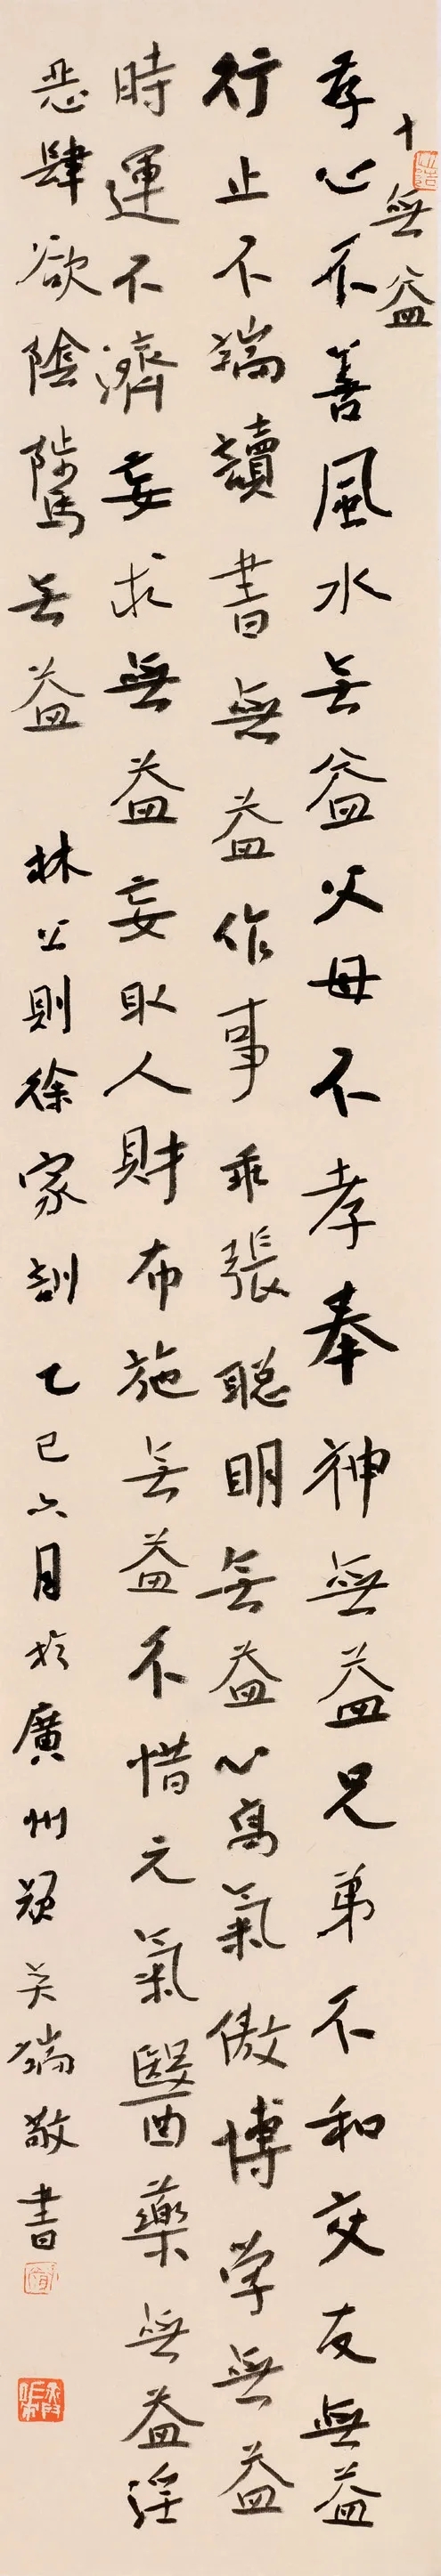 十無益
存心不善風水無益父母不孝奉神無益兄弟不和交友無益
行止不端讀書無益作事乖張聰明無益心高氣傲博學無益
時運不濟妄求無益妄取人財布施無益不惜元氣醫藥無益淫
惡肆欲陰騭無益 林公則徐家訓 乙巳六月於廣州 端敬書